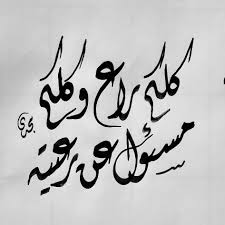 كلكم راع وكلكم
مسئول عن رعيته
مجدي